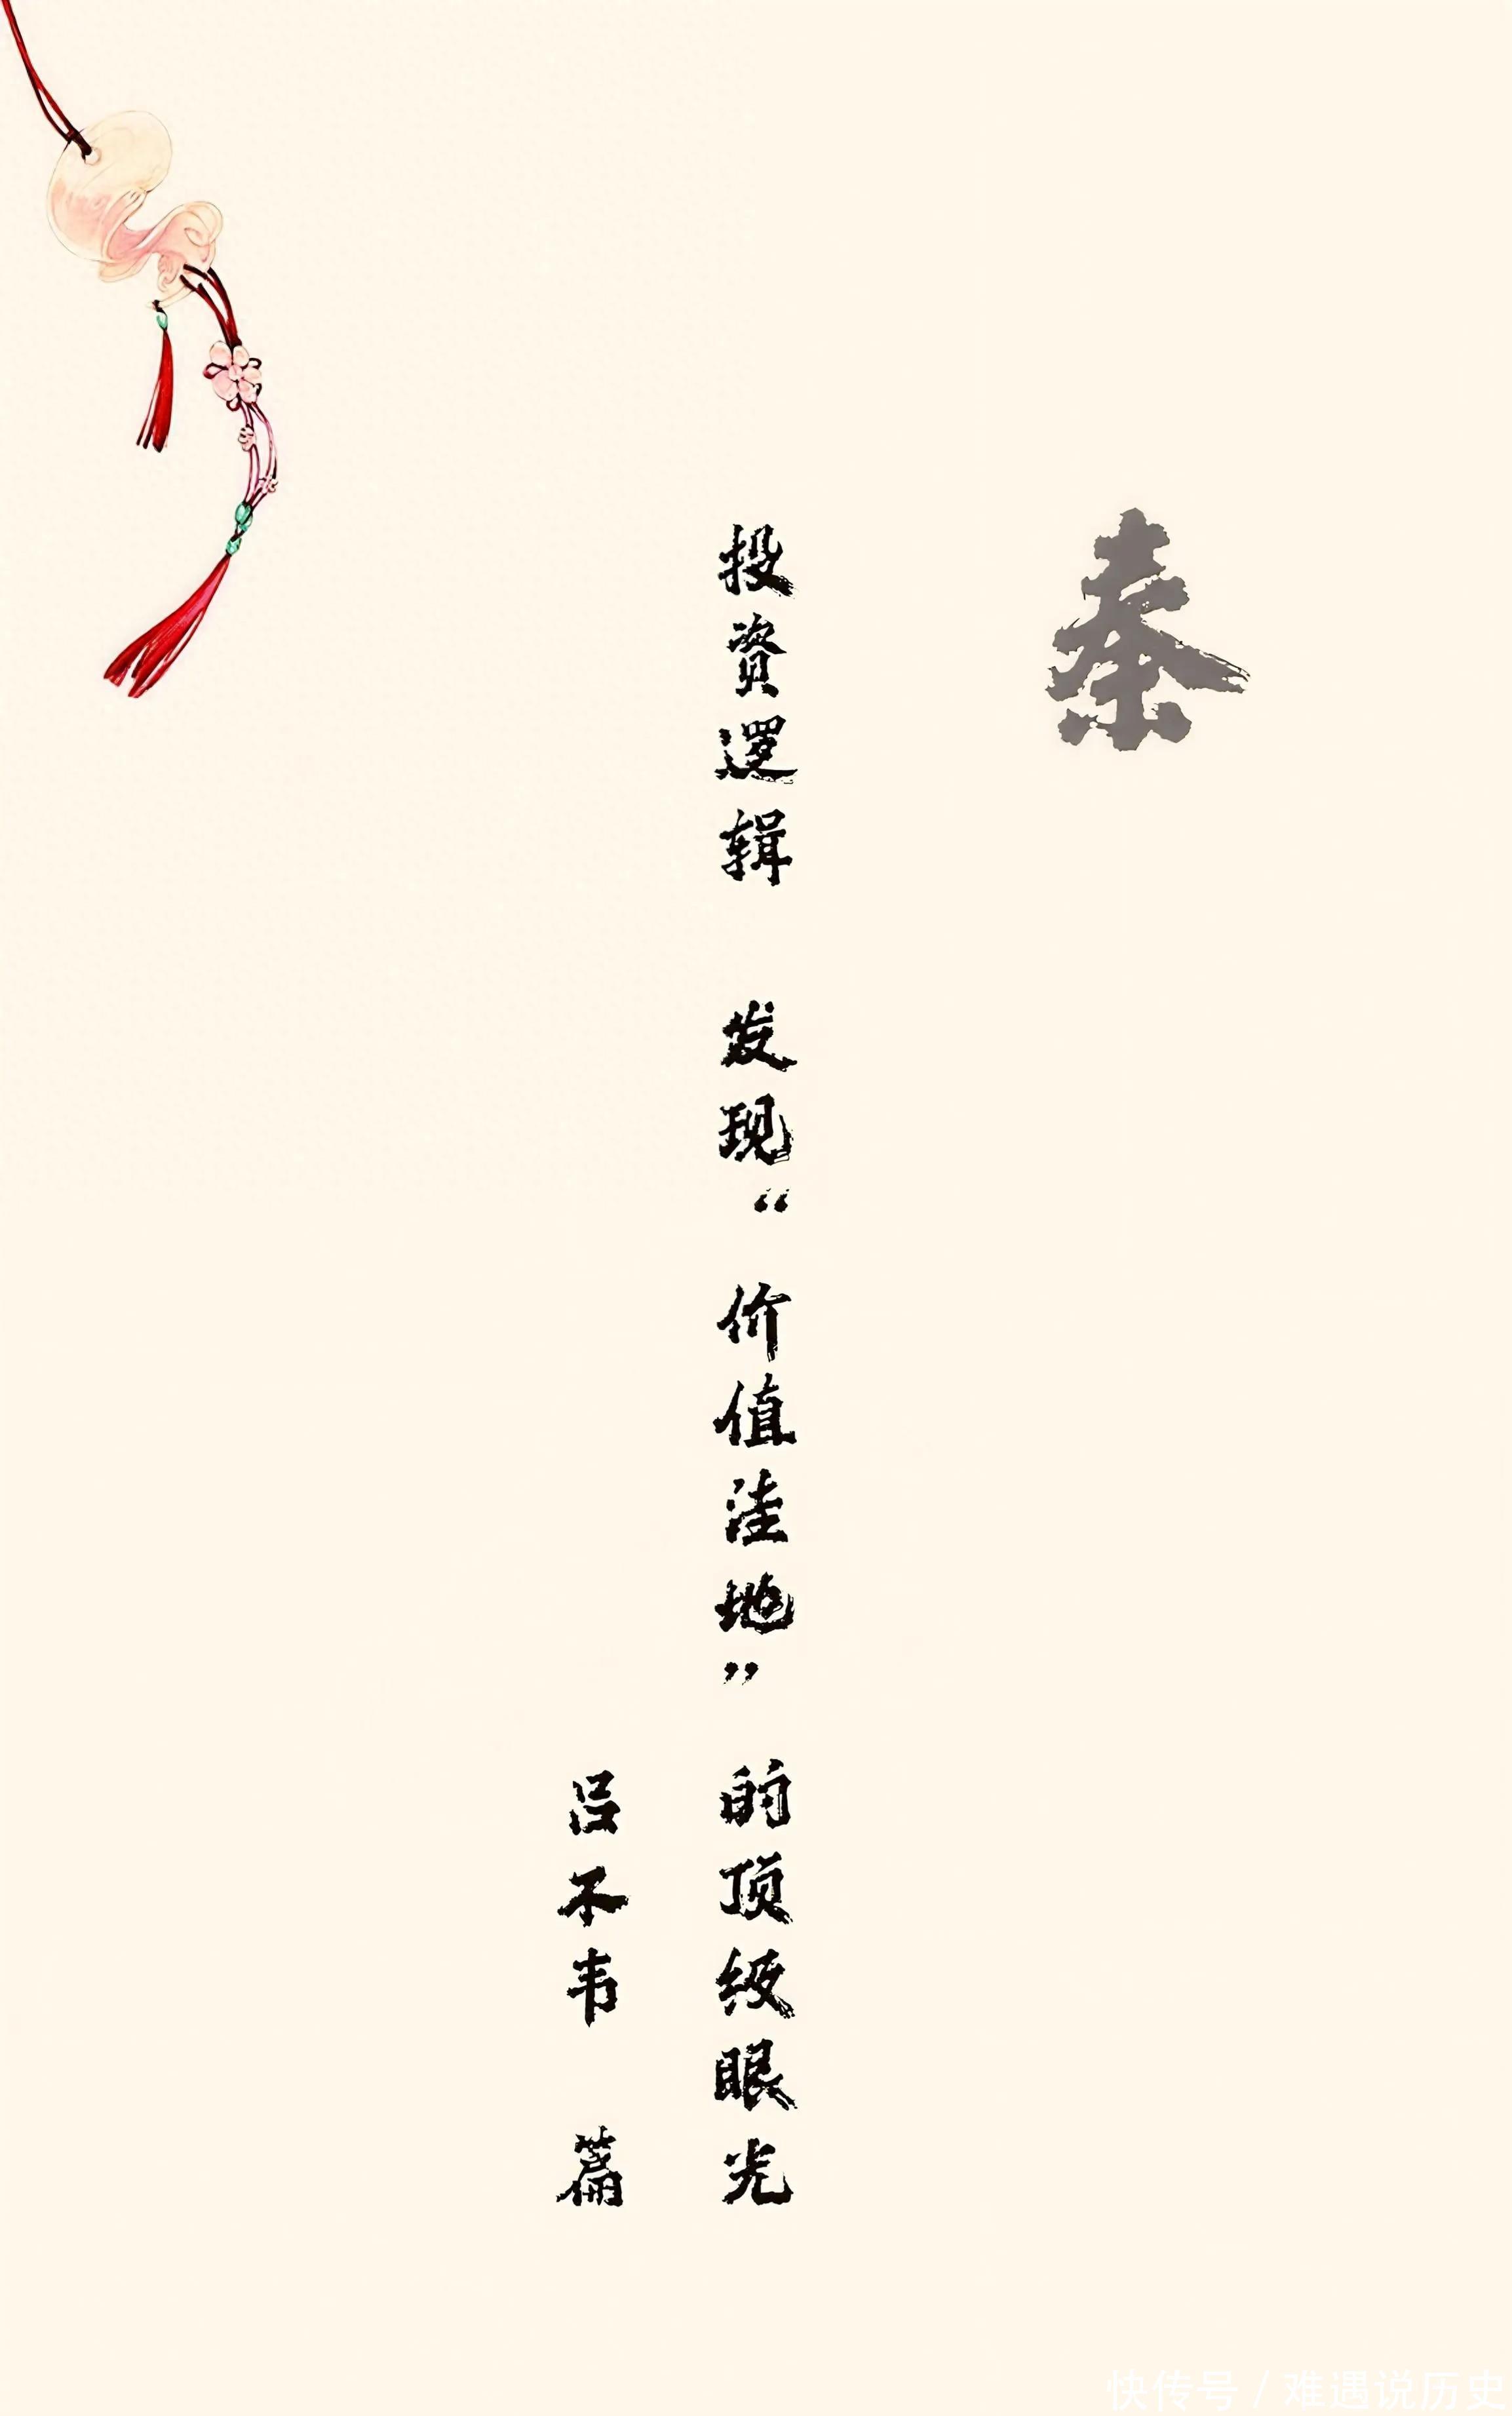 秦
投資逻辑 发现“价值洼地”的顶级眼光
吕不韦 篇
快传号/难遇说历史